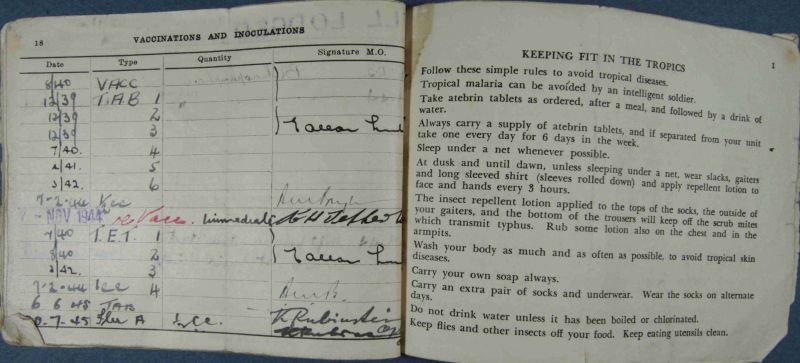 18
VACCINATIONS AND INOCULATIONS
Date Type Quantity Signature M.O.
8/40 VACC
12/39 T.A.B 1 "
12/39 2
12/39 3
7/40. 4
2/41. 5
3/42. 6
7-2-44
7 - NOV 1944 re Vacc. immediate
7/40 T.E.T. 1
8/40 2
2/42. 3
7-2-44 1cc 4
6 6 45 TAB
7-45 A cc. Rubinstein
1
KEEPING FIT IN THE TROPICS
Follow these simple rules to avoid tropical diseases.
Tropical malaria can be avoided by an intelligent soldier.
Take atebrin tablets as ordered, after a meal, and followed by a drink of
water.
Always carry a supply of atebrin tablets, and if separated from your unit
take one every day for 6 days in the week.
Sleep under a net whenever possible.
At dusk and until dawn, unless sleeping under a net, wear slacks, gaiters
and long sleeved shirt (sleeves rolled down) and apply repellent lotion to
face and hands every 3 hours.
The insect repellent lotion applied to the tops of the socks, the outside of
your gaiters, and the bottom of the trousers will keep off the scrub mites
which transmit typhus. Rub some lotion also on the chest and in the
armpits.
Wash your body as much and as often as possible, to avoid tropical skin
diseases.
Carry your own soap always.
Carry an extra pair of socks and underwear. Wear the socks on alternate
days.
Do not drink water unless it has been boiled or chlorinated.
Keep flies and other insects off your food. Keep eating utensils clean.